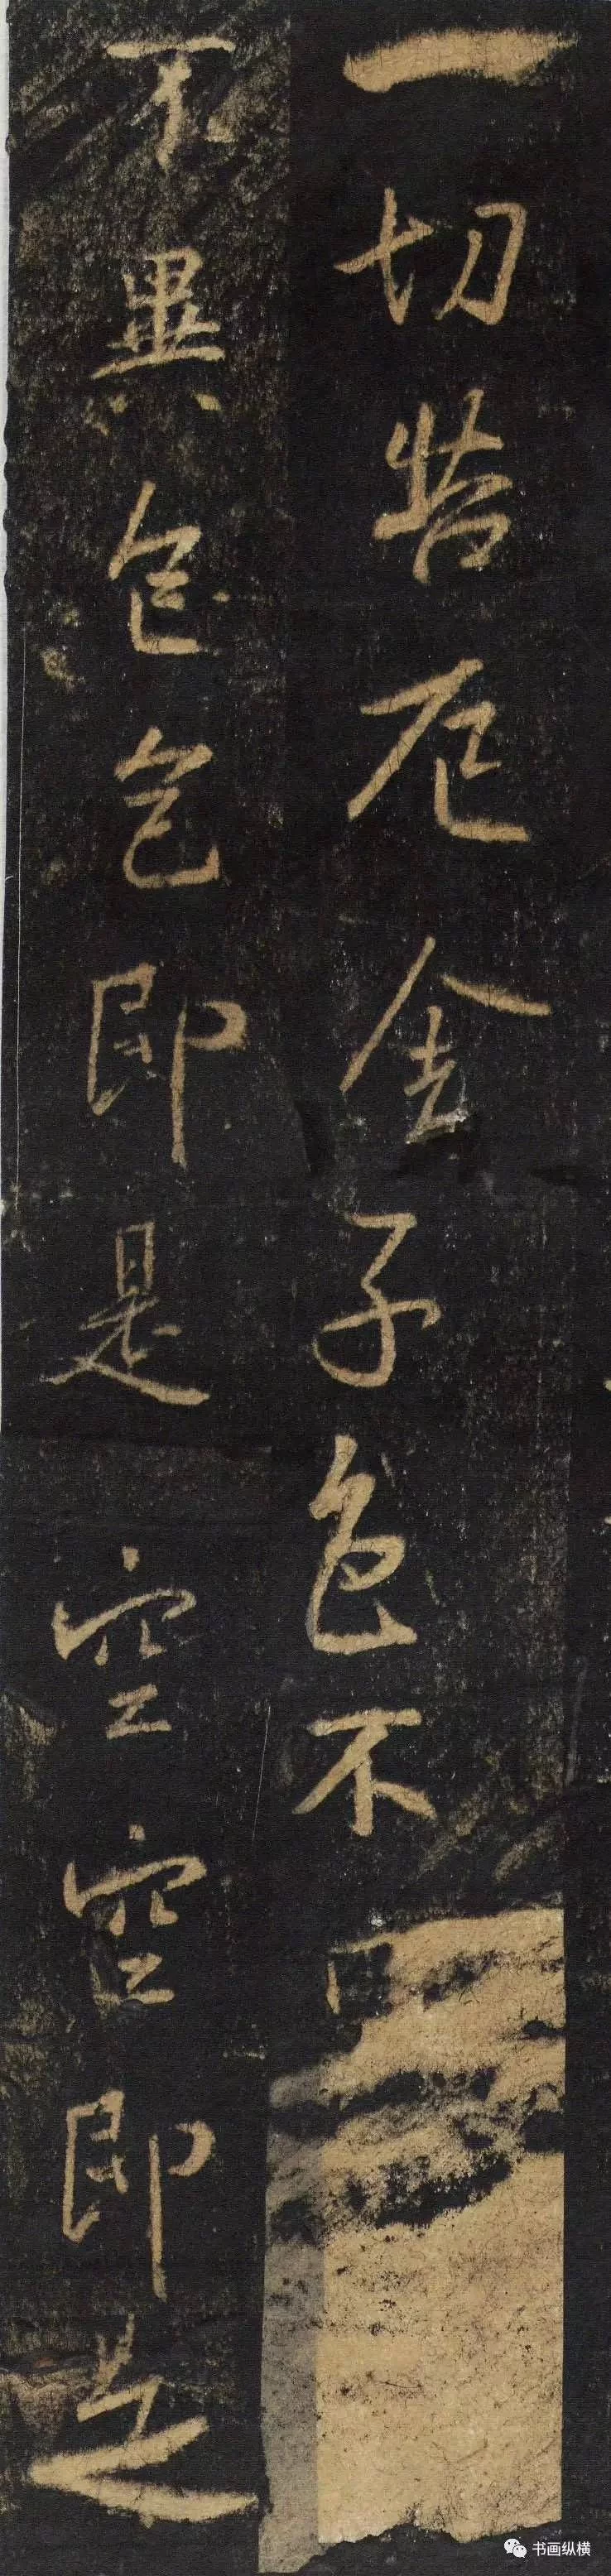 一切苦厄舍子色不
不異色色即是空空即是
书画纵横